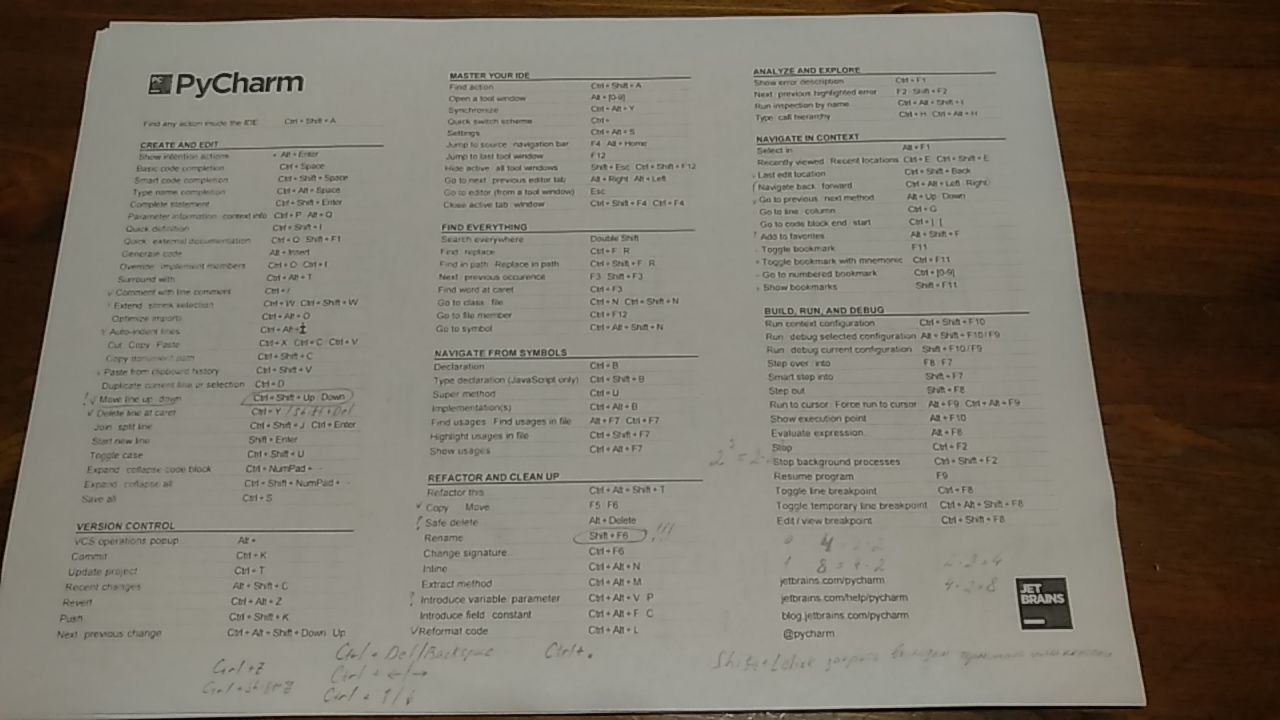 PC
PyCharm
Find any action inside the IDE Ctrl + Shift + A
CREATE AND EDIT
Show intention actions Alt + Enter
Basic code completion Ctrl + Space
Smart code completion Ctrl + Shift + Space
Type name completion Ctrl + Alt + Space
Complete statement Ctrl + Shift + Enter
Parameter information context info Ctrl + P Alt + Q
Quick definition Ctrl + Shift + I
Quick external documentation Ctrl + Q Shift + F1
Generate code Alt + Insert
Override implement members Ctrl + O Ctrl + I
Surround with Ctrl + Alt + T
Comment with line comment Ctrl + /
Extend shrink selection Ctrl + W Ctrl + Shift + W
Optimize imports Ctrl + Alt + O
Auto-indent lines Ctrl + Alt + I
Cut Copy Paste Ctrl + X Ctrl + C Ctrl + V
Copy document path Ctrl + Shift + C
Paste from clipboard history Ctrl + Shift + V
Duplicate current line or selection Ctrl + D
Move line up down Ctrl + Shift + Up Down
Delete line at caret Ctrl + Y / Shift + Del
Join split line Ctrl + Shift + J Ctrl + Enter
Start new line Shift + Enter
Toggle case Ctrl + Shift + U
Expand collapse code block Ctrl + NumPad + -
Expand collapse all Ctrl + Shift + NumPad + -
Save all Ctrl + S
VERSION CONTROL
VCS operations popup Alt +
Commit Ctrl + K
Update project Ctrl + T
Recent changes Alt + Shift + C
Revert Ctrl + Alt + Z
Push Ctrl + Shift + K
Next previous change Ctrl + Alt + Shift + Down Up
Ctrl + Z
Ctrl + Shift + Z
MASTER YOUR IDE
Find action Ctrl + Shift + A
Open a tool window Alt + [0-9]
Synchronize Ctrl + Alt + Y
Quick switch scheme Ctrl +
Settings Ctrl + Alt + S
Jump to source navigation bar F4 Alt + Home
Jump to last tool window F12
Hide active all tool windows Shift + Esc Ctrl + Shift + F12
Go to next previous editor tab Alt + Right Alt + Left
Go to editor (from a tool window) Esc
Close active tab window Ctrl + Shift + F4 Ctrl + F4
FIND EVERYTHING
Search everywhere Double Shift
Find replace Ctrl + F R
Find in path Replace in path Ctrl + Shift + F R
Next previous occurence F3 Shift + F3
Find word at caret Ctrl + F3
Go to class file Ctrl + N Ctrl + Shift + N
Go to file member Ctrl + F12
Go to symbol Ctrl + Alt + Shift + N
NAVIGATE FROM SYMBOLS
Declaration Ctrl + B
Type declaration (JavaScript only) Ctrl + Shift + B
Super method Ctrl + U
Implementation(s) Ctrl + Alt + B
Find usages Find usages in file Alt + F7 Ctrl + F7
Highlight usages in file Ctrl + Shift + F7
Show usages Ctrl + Alt + F7
REFACTOR AND CLEAN UP
Refactor this Ctrl + Alt + Shift + T
Copy Move F5 F6
Safe delete Alt + Delete
Rename Shift + F6 !!!
Change signature Ctrl + F6
Inline Ctrl + Alt + N
Extract method Ctrl + Alt + M
Introduce variable parameter Ctrl + Alt + V P
Introduce field constant Ctrl + Alt + F C
Reformat code Ctrl + Alt + L
Ctrl + Del/Backspace Ctrl + .
Ctrl + ←/→
Ctrl + ↑/↓
ANALYZE AND EXPLORE
Show error description Ctrl + F1
Next previous highlighted error F2 Shift + F2
Run inspection by name Ctrl + Alt + Shift + I
Type call hierarchy Ctrl + H Ctrl + Alt + H
NAVIGATE IN CONTEXT
Select in Alt + F1
Recently viewed Recent locations Ctrl + E Ctrl + Shift + E
Last edit location Ctrl + Shift + Back
Navigate back forward Ctrl + Alt + Left Right
Go to previous next method Alt + Up Down
Go to line column Ctrl + G
Go to code block end start Ctrl + ] [
Add to favorites Alt + Shift + F
Toggle bookmark F11
Toggle bookmark with mnemonic Ctrl + F11
Go to numbered bookmark Ctrl + [0-9]
Show bookmarks Shift + F11
BUILD, RUN, AND DEBUG
Run context configuration Ctrl + Shift + F10
Run debug selected configuration Alt + Shift + F10/F9
Run debug current configuration Shift + F10/F9
Step over into F8 F7
Smart step into Shift + F7
Step out Shift + F8
Run to cursor Force run to cursor Alt + F9 Ctrl + Alt + F9
Show execution point Alt + F10
Evaluate expression Alt + F8
Stop Ctrl + F2
Stop background processes Ctrl + Shift + F2
Resume program F9
Toggle line breakpoint Ctrl + F8
Toggle temporary line breakpoint Ctrl + Alt + Shift + F8
Edit / view breakpoint Ctrl + Shift + F8
8 = 4 · 2
jetbrains.com/pycharm
jetbrains.com/help/pycharm
blog.jetbrains.com/pycharm
@pycharm
JET
BRAINS
Shift + click закрыть